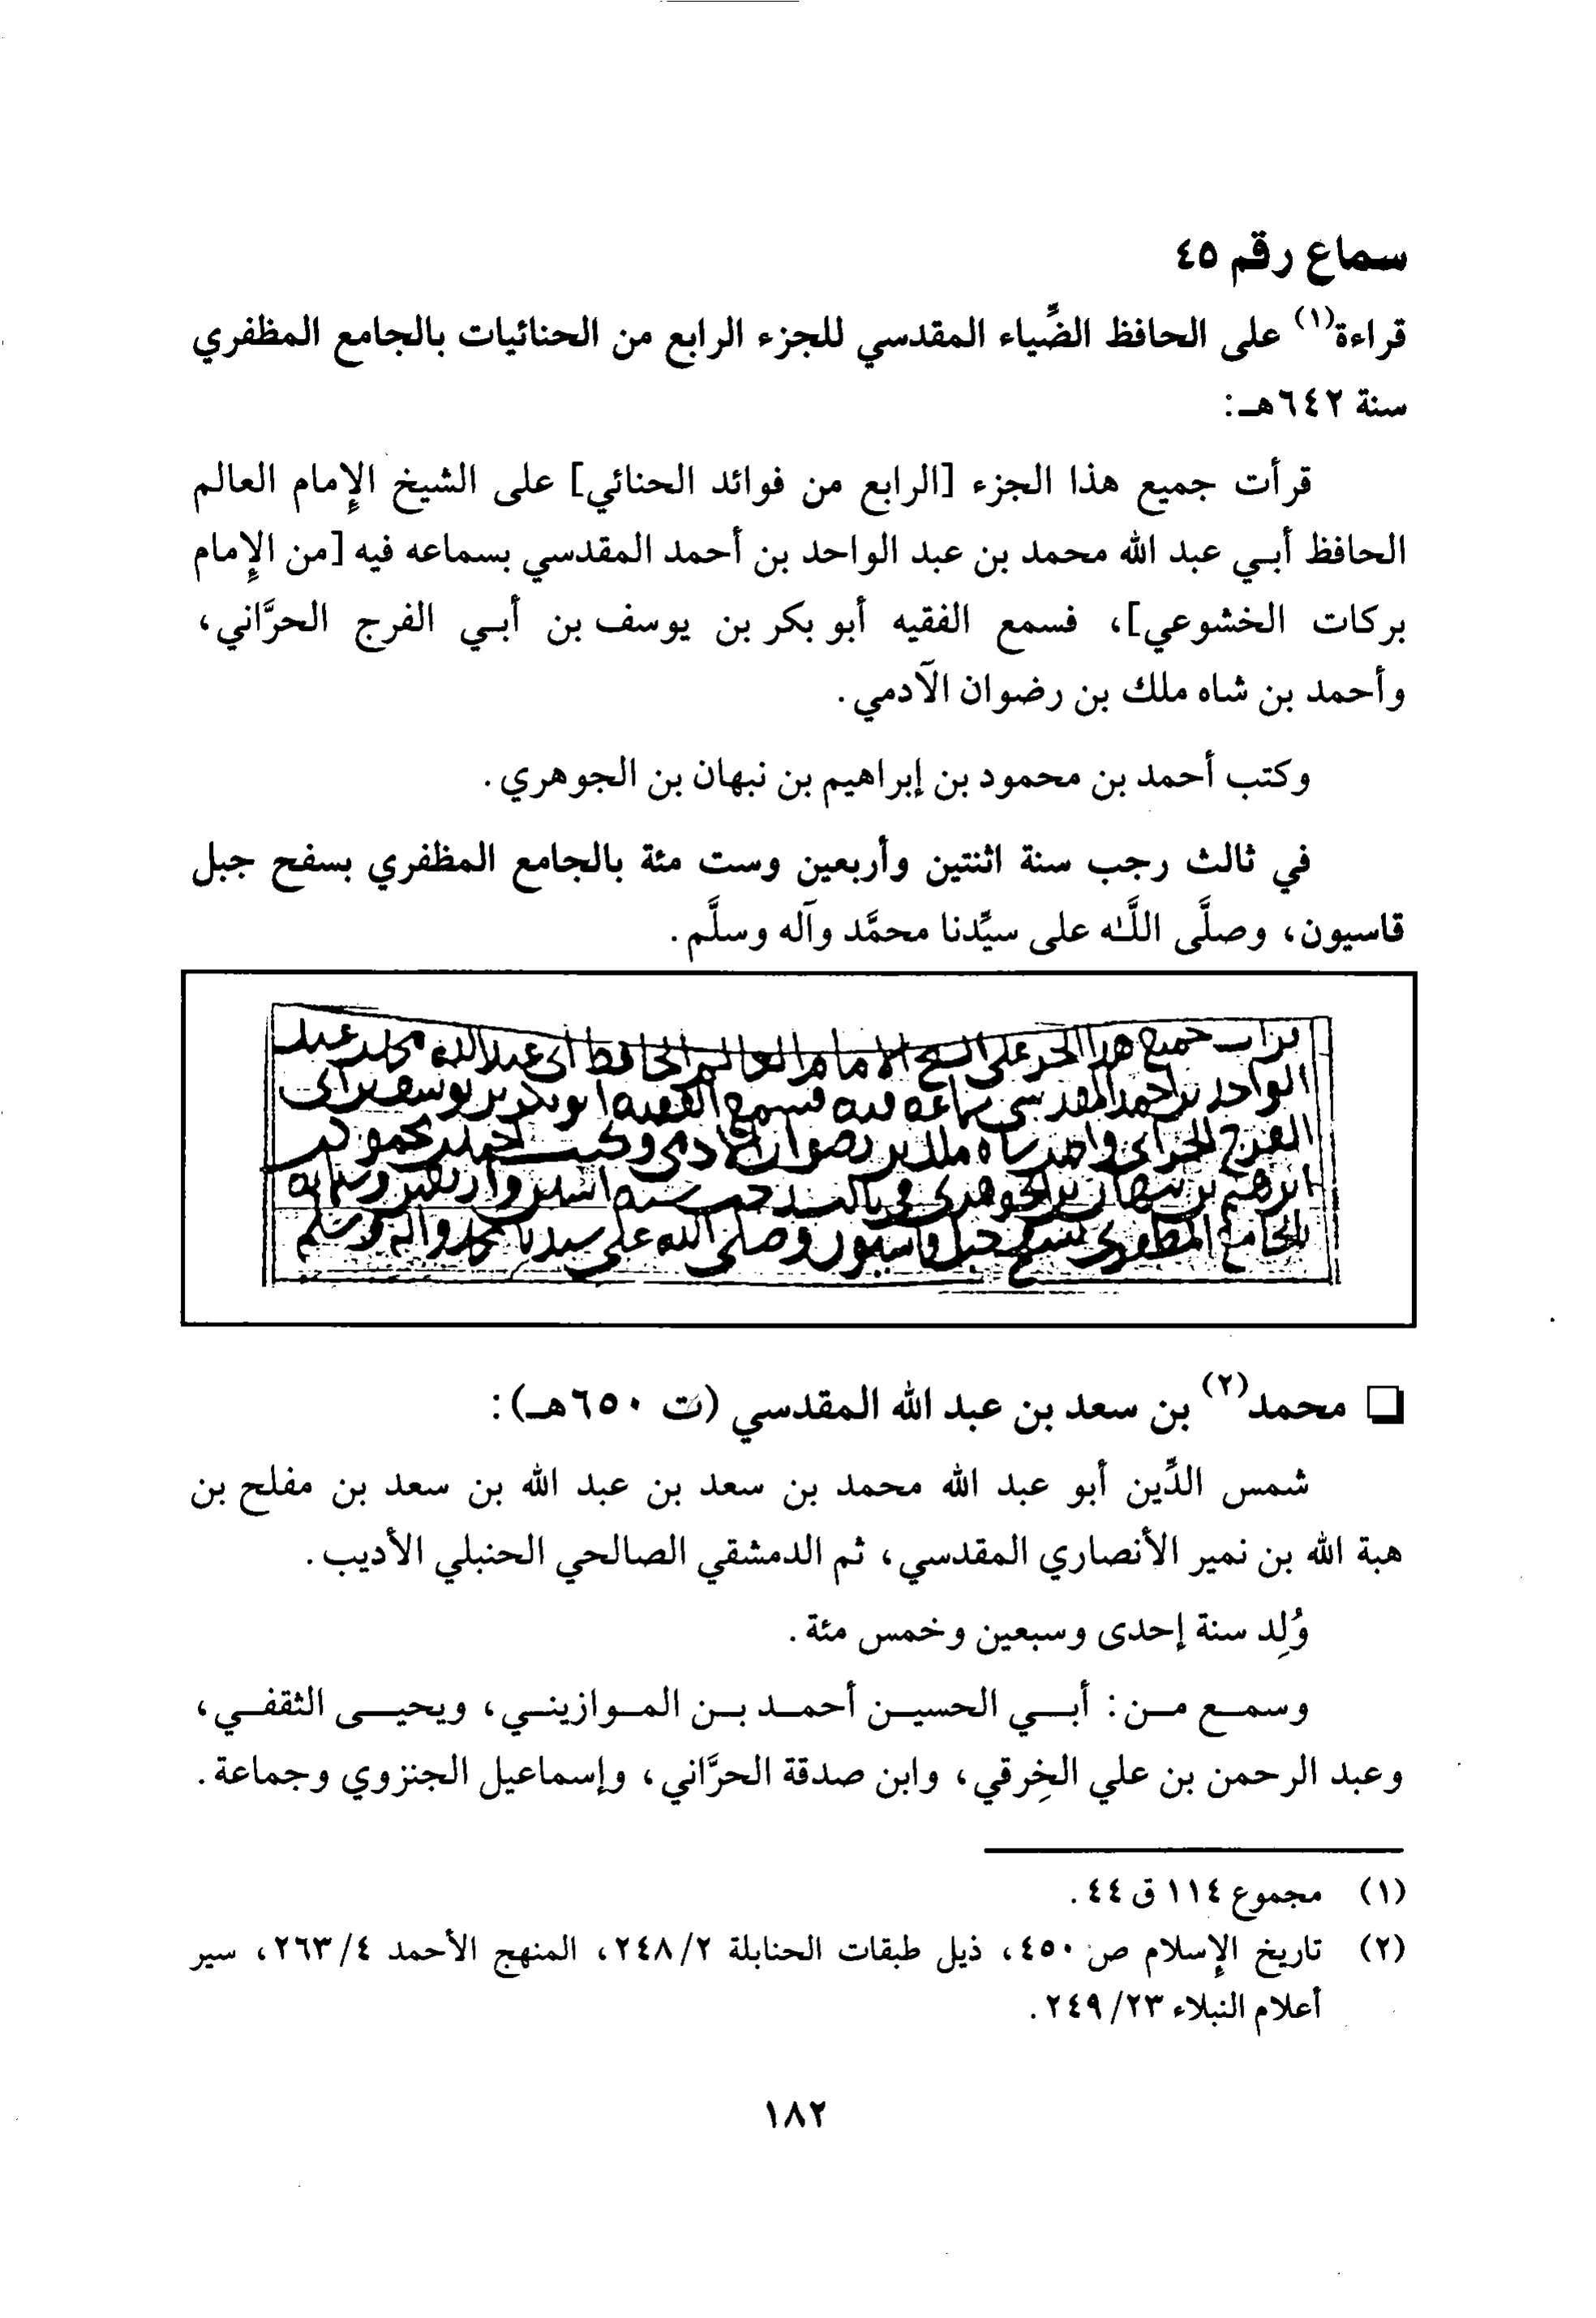 سماع رقم ٤٥
قراءة(١) على الحافظ الضِّياء المقدسي للجزء الرابع من الحنائيات بالجامع المظفري
سنة ٦٤٢هـ:
قرأت جميع هذا الجزء [الرابع من فوائد الحنائي] على الشيخ الإمام العالم
الحافظ أبـي عبد الله محمد بن عبد الواحد بن أحمد المقدسي بسماعه فيه [من الإمام
بركات الخشوعي]، فسمع الفقيه أبو بكر بن يوسف بن أبـي الفرج الحرَّاني،
وأحمد بن شاه ملك بن رضوان الآدمي.
وكتب أحمد بن محمود بن إبراهيم بن نبهان بن الجوهري.
في ثالث رجب سنة اثنتين وأربعين وست مئة بالجامع المظفري بسفح جبل
قاسيون، وصلَّى اللَّـٰه على سيِّدنا محمَّد وآله وسلَّم.
قرات جميع هذا الجز على الشيخ الامام العالم الحافظ ابى عبد الله محمد بن عبد
الواحد بن احمد المقدسي بسماعه فيه فسمع الفقيه ابو بكر بن يوسف بن ابى
الفرج الحرانى واحمد بن شاه ملك بن رضوان الادمى وكتب احمد بن محمود بن
ابرهيم بن نبهان بن الجوهرى فى ثالث رجب سنه اثنتين واربعين وستمايه
بالجامع المظفرى بسفح جبل قاسيون وصلى الله على سيدنا محمد واله وسلم
❏ محمد(٢) بن سعد بن عبد الله المقدسي (ت ٦٥٠هـ):
شمس الدِّين أبو عبد الله محمد بن سعد بن عبد الله بن سعد بن مفلح بن
هبة الله بن نمير الأنصاري المقدسي، ثم الدمشقي الصالحي الحنبلي الأديب.
وُلِد سنة إحدى وسبعين وخمس مئة.
وسمـع مـن: أبـي الحسيـن أحمـد بـن المـوازينـي، ويحيـى الثقفـي،
وعبد الرحمن بن علي الخِرقي، وابن صدقة الحرَّاني، وإسماعيل الجنزوي وجماعة.
(١) مجموع ١١٤ ق ٤٤.
(٢) تاريخ الإسلام ص ٤٥٠، ذيل طبقات الحنابلة ٢/ ٢٤٨، المنهج الأحمد ٤/ ٢٦٣، سير
أعلام النبلاء ٢٣/ ٢٤٩.
١٨٢